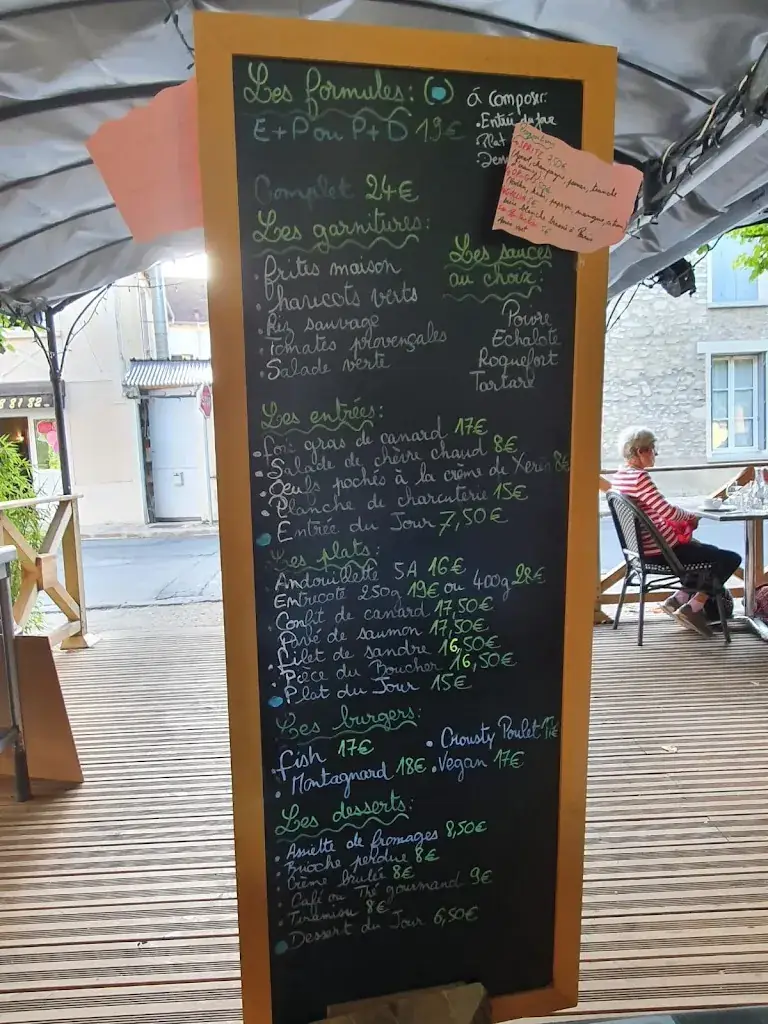 Les formules: (•)
á composer:
E+P ou P+D 19€
•Entrée du jour
Plat
Complet 24€
Les garnitures:
•frites maison
•haricots verts
•Riz sauvage
•Tomates provençales
•Salade verte
Les sauces
au choix:
Poivre
Echalote
Roquefort
Tartare
Les entrées:
•Foie gras de canard 17€
•Salade de chèvre chaud 8€
•Oeufs pochés à la crème de Xeres 8€
•Planche de charcuterie 15€
Entrée du Jour 7,50€
Les plats:
•Andouillette 5A 16€
•Entrecote 250g 19€ ou 400g 28€
•Confit de canard 17,50€
•Pavé de saumon 17,50€
•Filet de sandre 16,50€
•Pièce du Boucher 16,50€
Plat du Jour 15€
Les burgers:
•fish 17€
•Crousty Poulet 17€
•Montagnard 18€
•Vegan 17€
Les desserts:
•Assiette de fromages 8,50€
•Brioche perdue 8€
•Crème brulée 8€
•Café ou Thé gourmand 9€
•Tiramisu 8€
Dessert du Jour 6,50€